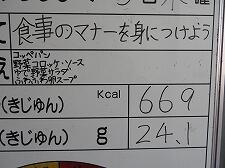 食事のマナーを身につけよう
コッペパン
野菜コロッケ・ソース
ゆで野菜サラダ
ふわふわ卵スープ
(きじゅん) Kcal 669
(きじゅん) g 24.1